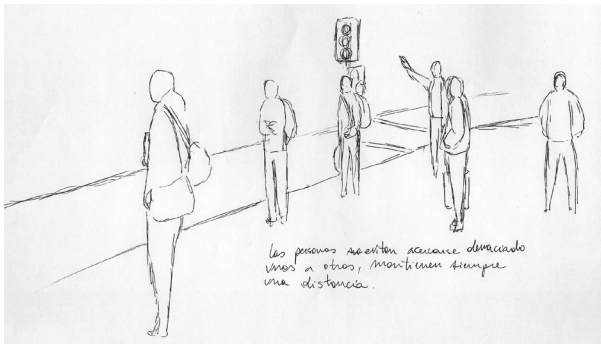 Las personas evitan acercarse demaciado
unos a otros, mantienen siempre
una distancia.